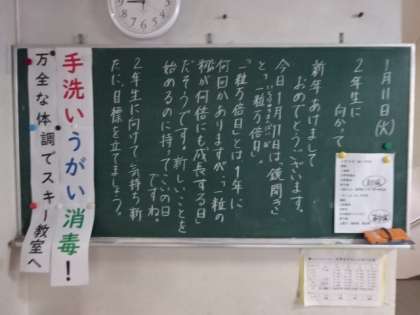 1月11日(火)
2年生に
向かって
新年あけまして
おめでとうございます。
今日1月11日は鏡開き
と、一粒万倍日。
「一粒万倍日」とは1年に
何回かありますが、「一粒の
籾が何倍にも成長する日」
だそうです。新しいことを
始めるのに持ってこいの日
ですね。
2年生に向けて、気持ち新
たに、目標を立てましょう。
手洗いうがい消毒!
万全な体調でスキー教室へ